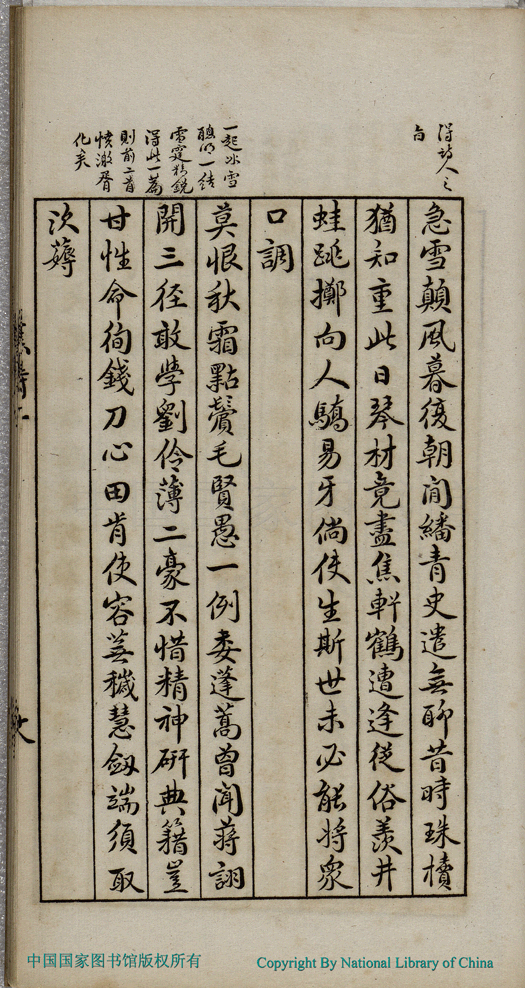 得詩人之
旨
急雪顛風暮復朝閒繙青史遣無聊昔時珠櫝
猶知重此日琴材竟盡焦軒鶴遭逢從俗羨井
蛙跳擲向人驕易牙倘使生斯世未必能將衆
口調
一起冰雪
聰明一結
雷霆精銳
得此一篇
則前二首
憤激胥
化矣
莫恨秋霜點鬢毛賢愚一例委蓬蒿曾聞蔣詡
開三徑敢學劉伶薄二豪不惜精神研典籍豈
甘性命徇錢刀心田肯使容蕪穢慧劔端須取
次薅
中国国家图书馆版权所有
Copyright By National Library of China